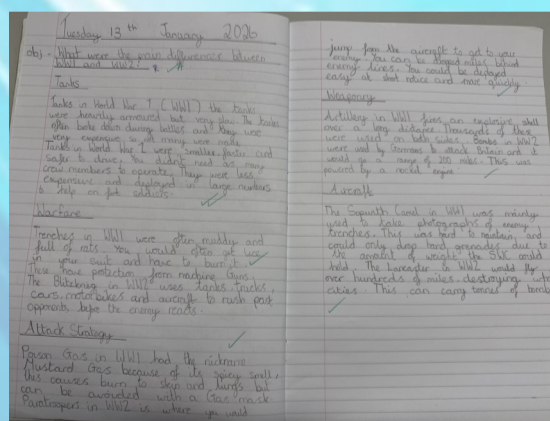 Tuesday 13th January 2026
obj - What were the main differences between
WWI and WW2?
Tanks
Tanks in World War 1 (WWI) the tanks
were heavily armoured but very slow. The tanks
often broke down during battles and they were
very expensive so not many were made.
Tanks in World War 2 were smaller, faster and
safer to drive. You didn't need as many
crew members to operate. They were less
expensive and deployed in large numbers
to help on foot soldiers.
Warfare
Trenches in WWI were often muddy and
full of rats. You would often get
in your suit and have to burn it.
These have protection from machine Guns.
The Blitzkrieg in WW2 uses tanks, trucks,
cars, motorbikes and aircraft to rush past
opponents before the enemy reacts.
Attack Strategy
Poison Gas in WWI had the nickname
Mustard Gas because of its spicy smell,
this causes burn to skin and lungs but
can be avoided with a Gas mask
Paratroopers in WW2 is where you would
jump from the aircraft to get to your
enemy. You can be dropped miles behind
enemy lines. You could be deployed
easy at short notice and move quickly
Weaponry
Artillery in WWI fires an explosive shell
over a long distance. Thousands of these
were used on both sides. Bombs in WW2
were used by Germans to attack Britain and it
would go a range of 200 miles. This was
powered by a rocket engine
Aircraft
The Sopwith Camel in WWI was mainly
used to take photographs of enemy
trenches. This was hard to and
could only drop hand grenades due to
the amount of weight the could
hold. The Lancaster in WW2 would fly
over hundreds of miles destroying
cities. This can carry tonnes of bombs